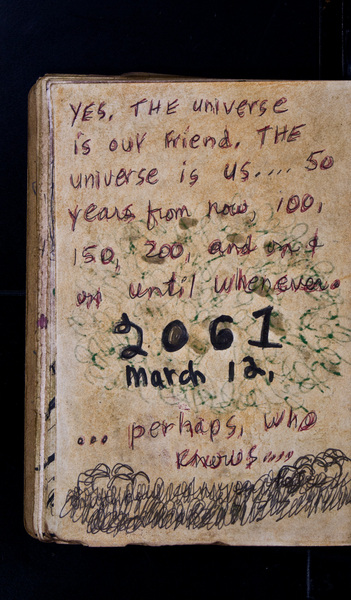 YES, THE universe
is our friend. THE
universe is us.... 50
years from now, 100,
150, 200, and on &
on until whenever.
2061
march 12,
... perhaps, who
knows....